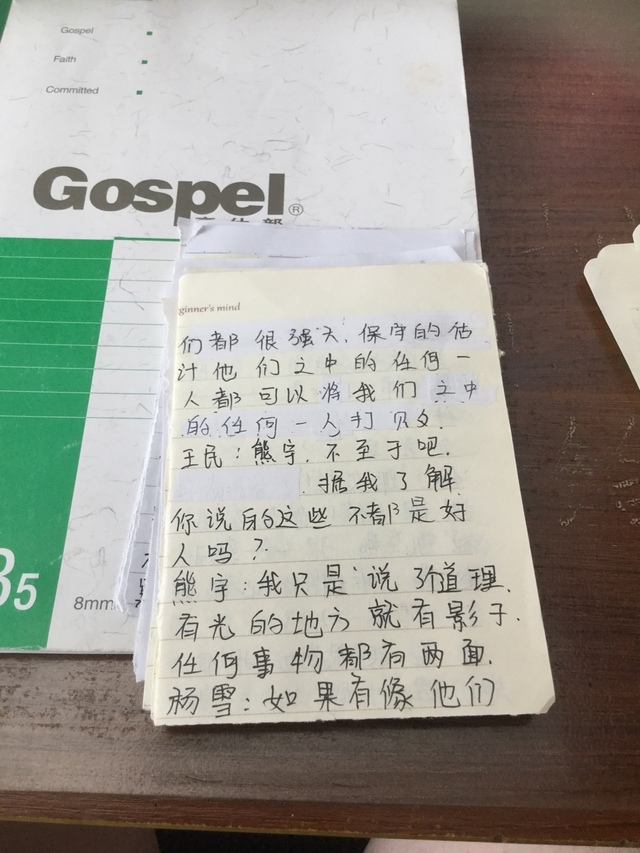 Gospel
Faith
Committed
Gospel®
ginner's mind
们都很强大.保守的估
计他们之中的任何一
人都可以将我们之中
的任何一人打败.
王民:熊宇.不至于吧.
.据我了解
你说的这些不都是好
人吗?
熊宇:我只是说个道理.
有光的地方就有影子.
任何事物都有两面.
杨雪:如果有像他们
B5
8mm